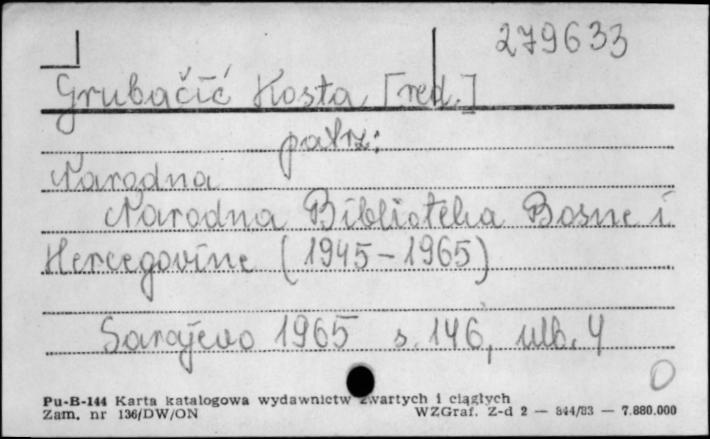 279633
Grubačić Kosta [red.]
patrz:
Narodna
Narodna Biblioteka Bosne i
Hercegovine (1945-1965)
Sarajevo 1965 s. 146, ulb. 4
Pu-B-144 Karta katalogowa wydawnictw zwartych i ciągłych
Zam. nr 136/DW/ON WZGraf. Z-d 2 — 844/83 — 7.880.000